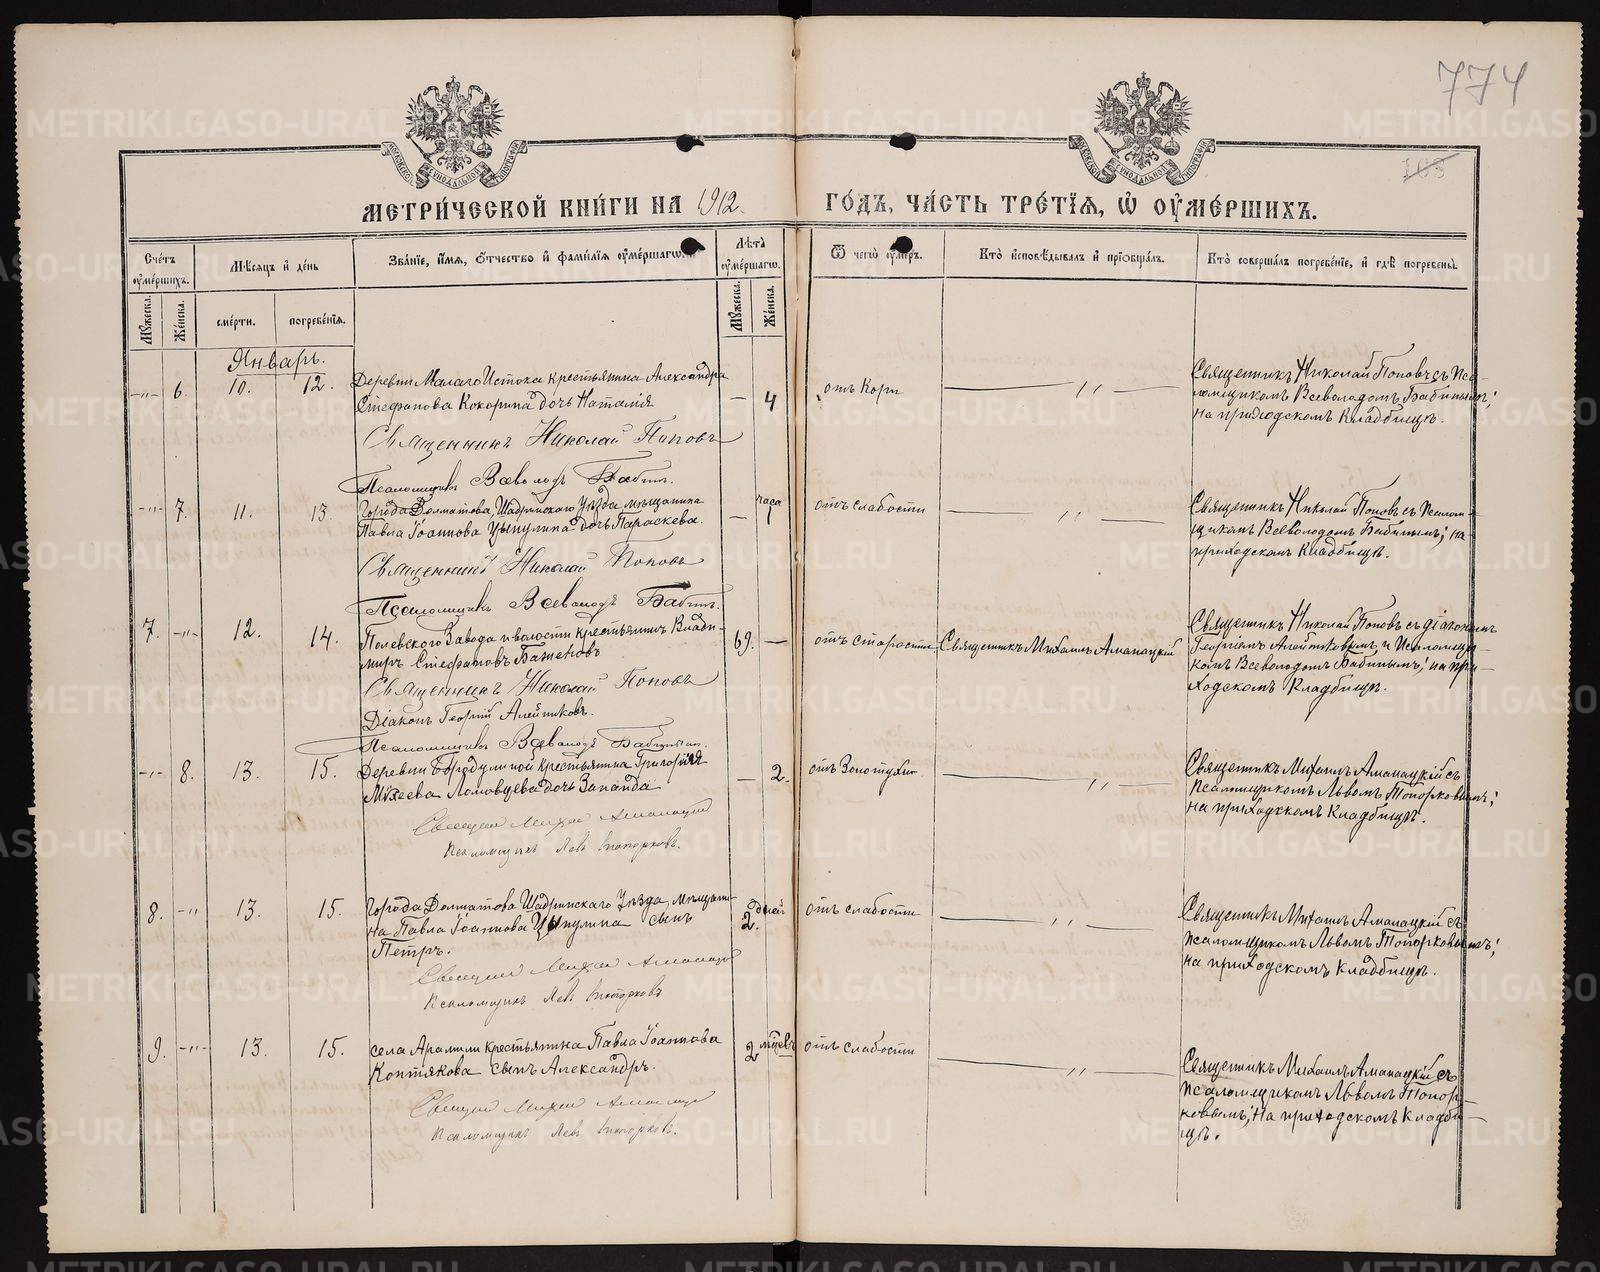 774
103
МЕТРИ́ЧЕСКОЙ КНИ́ГИ НА 1912. ГО́ДЪ, ЧА́СТЬ ТРЕ́ТІѦ, Ѡ ОУ҆МЕ́РШИХЪ.
Сче́тъ оумершихъ.
Мѣсяцъ и день
Званіе, имя, отчество и фамилія оумершагѡ.
Лѣта оумершагѡ.
Ѿ чегѡ оумеръ.
Кто исповѣдывалъ и пріобщалъ.
Кто совершалъ погребеніе, и гдѣ погребены.
Мужеска.
Женска.
смерти.
погребенія.
Мужеска.
Женска.
Январь.
-"- 6. 10. 12.
Деревни Малаго Истока крестьянина Александра
Стефанова Кокорина дочь Наталія
Священникъ Николай Поповъ
Псаломщикъ Всеволодъ Бабинъ.
— 4
отъ кори
— " —
Священникъ Николай Поповъ съ Пса-
ломщикомъ Всеволодомъ Бабинымъ;
на приходскомъ кладбищѣ.
-"- 7. 11. 13.
Города Долматова, Шадринскаго Уѣзда, мѣщанина
Павла Іоаннова Цыпулина дочь Параскева.
Священникъ Николай Поповъ
Псаломщикъ Всеволодъ Бабинъ.
— часа 1
отъ слабости
— " —
Священникъ Николай Поповъ съ Псалом-
щикомъ Всеволодомъ Бабинымъ; на
приходскомъ кладбищѣ.
7. -"- 12. 14.
Полевского Завода и волости крестьянинъ Влади-
миръ Стефановъ Баженовъ
Священникъ Николай Поповъ
Діаконъ Георгій Алейниковъ.
Псаломщикъ Всеволодъ Бабинъ.
69. —
отъ старости
Священникъ Михаилъ Аманацкій
Священникъ Николай Поповъ съ діакономъ
Георгіемъ Алейниковымъ и Псаломщи-
комъ Всеволодомъ Бабинымъ; на при-
ходскомъ кладбищѣ.
-"- 8. 13. 15.
Деревни Бородулиной крестьянина Григорія
Моѵсеева Ломовцева дочь Зинаида
Михаил Аманацкий
Псаломщикъ Левъ Топорковъ.
— 2.
отъ Золотухи
— " —
Священникъ Михаилъ Аманацкій съ
псаломщикомъ Львомъ Топорковымъ;
на приходскомъ кладбищѣ.
8. -"- 13. 15.
Города Долматова Шадринскаго Уѣзда, мѣщани-
на Павла Іоаннова Цыпулина сынъ
Петръ.
Михаил Аманацкий
Псаломщикъ Левъ Топорковъ
дней 2.
отъ слабости
— " —
Священникъ Михаилъ Аманацкій съ
псаломщикомъ Львомъ Топорковымъ;
на приходскомъ кладбищѣ.
9. -"- 13. 15.
села Арамили крестьянина Павла Іоаннова
Коптякова сынъ Александръ.
Михаил Аманацкий
Псаломщикъ Левъ Топорковъ.
2 мѣсяцевъ
отъ слабости
— " —
Священникъ Михаилъ Аманацкій съ
псаломщикомъ Львомъ Топор-
ковымъ; на приходскомъ кладби-
щѣ.
METRIKI.GASO-URAL.RU